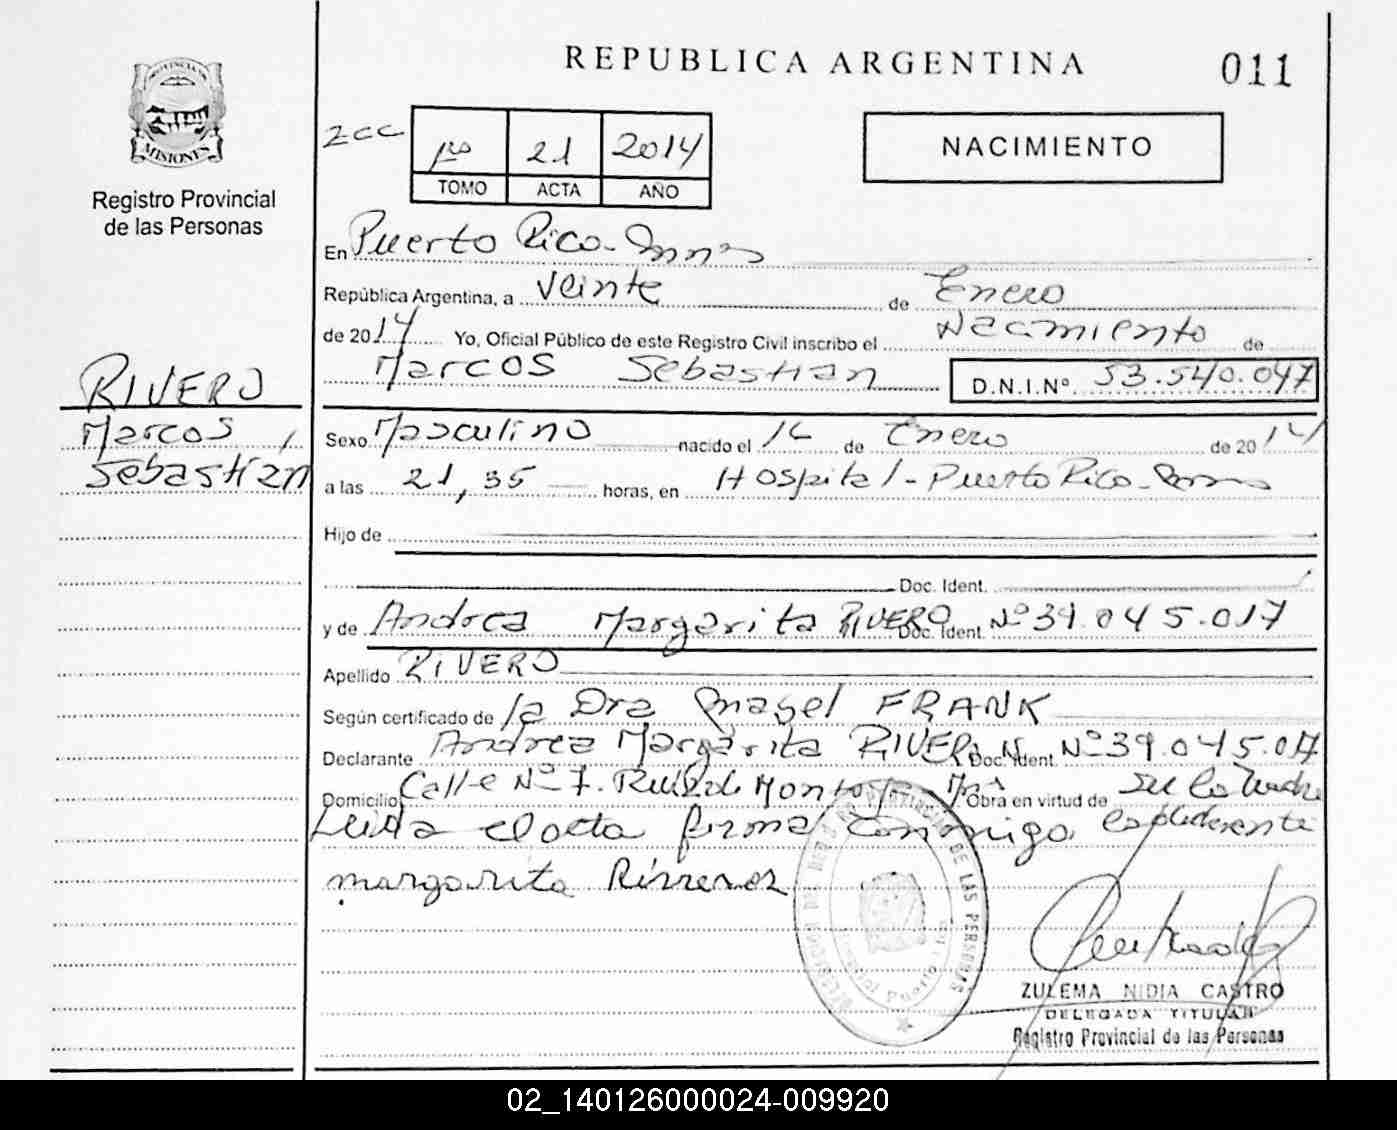 REPUBLICA ARGENTINA
011
PROVINCIA DE
MISIONES
Registro Provincial
de las Personas
1ro 21 2014
TOMO ACTA AÑO
NACIMIENTO
En Puerto Rico-
República Argentina, a Veinte de Enero
de 2014 Yo, Oficial Público de este Registro Civil inscribo el Nacimiento de
Marcos Sebastian D.N.I.Nº 53.540.047
RIVERO
Marcos
Sebastián
Sexo Masculino nacido el de Enero de 2014
a las 21,35 horas, en Hospital-Puerto Rico-
Hijo de
Doc. Ident.
y de Andrea Margarita RIVERO Doc. Ident. Nº 39.045.017
Apellido RIVERO
Según certificado de la Dra FRANK
Declarante Andrea Margarita RIVERO Doc. Ident. Nº 39.045.017
Domicilio Calle Nº 7. Ruiz de Montoya Obra en virtud de su
Leida el acta firma conmigo
margarita
ZULEMA NIDIA CASTRO
DELEGADA TITULAR
Registro Provincial de las Personas
02_140126000024-009920